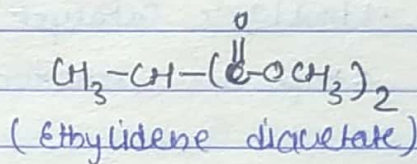 O
||
CH₃-CH-(C-OCH₃)₂
(Ethylidene diacetate)